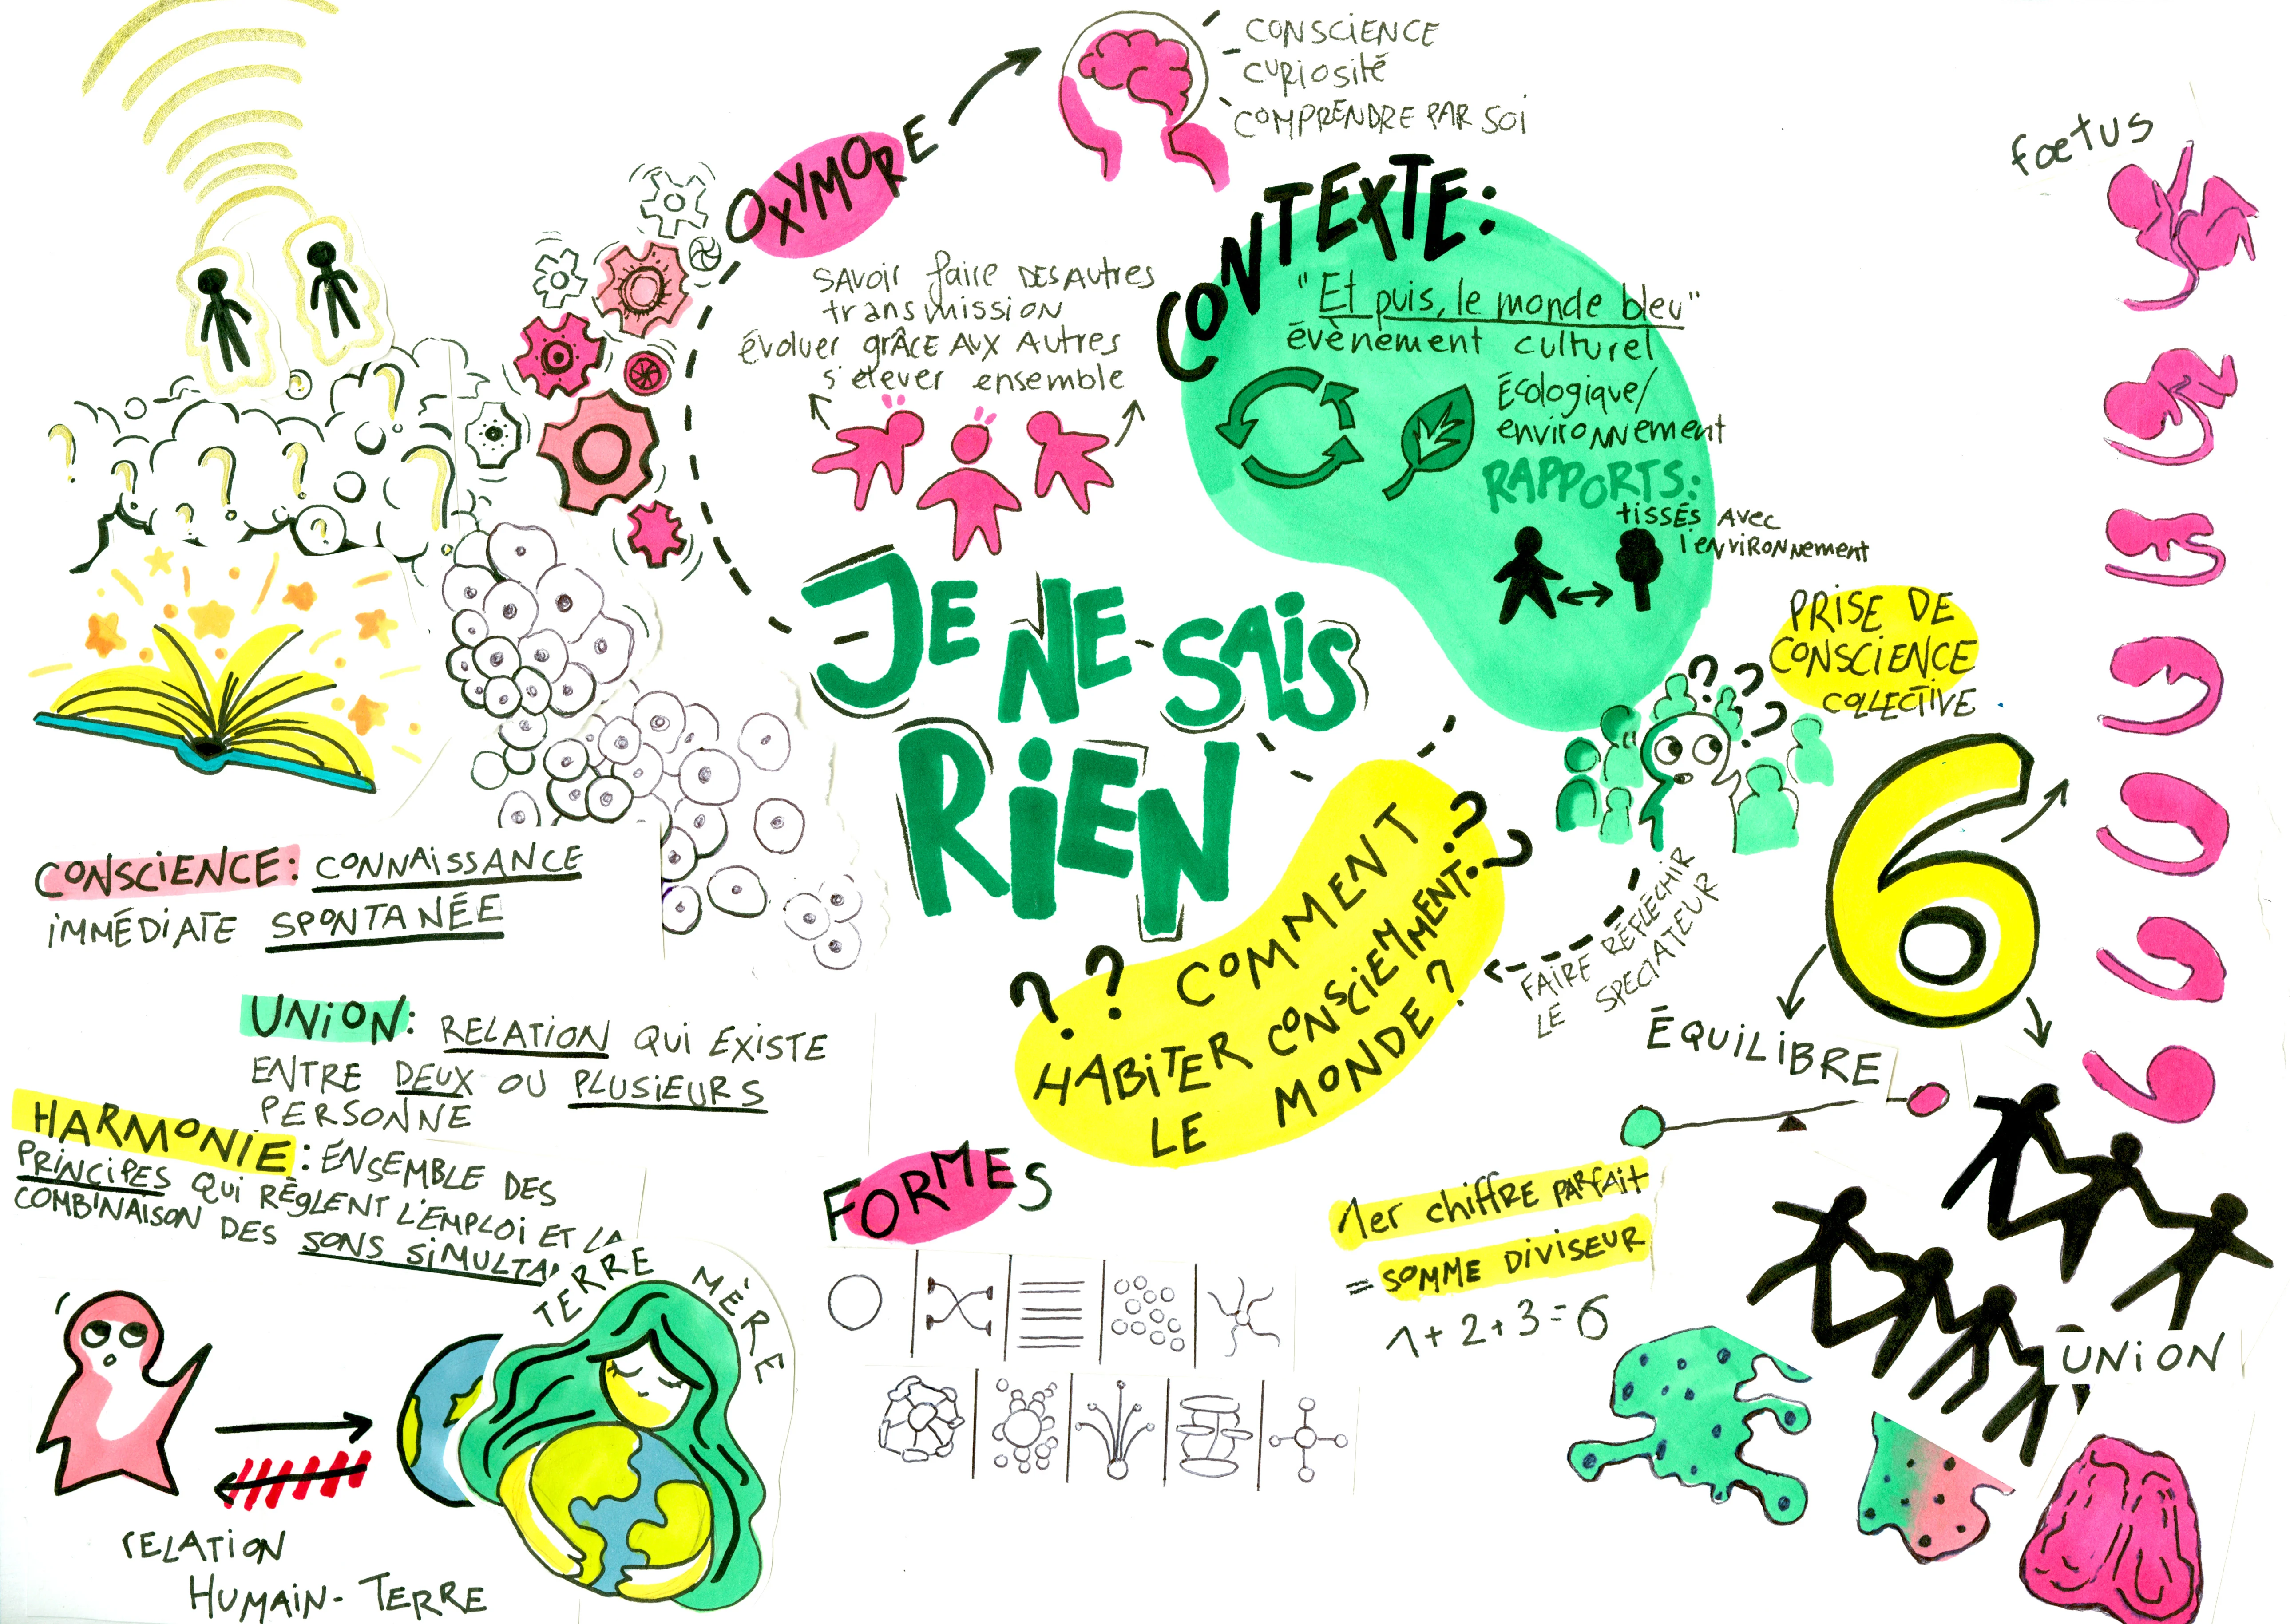 CONSCIENCE
CURIOSITÉ
COMPRENDRE PAR SOI
OXYMORE
SAVOIR faire DES AUTRES
transmission
évoluer grÂCE AUX AUTRES
s'élever ensemble
CONTEXTE:
"Et puis, le monde bleu"
évènement culturel
Écologique/
environnement
RAPPORTS:
tissés avec
l'environnement
fœtus
PRISE DE
CONSCIENCE
COLLECTIVE
? ? ?
JE NE SAIS
RIEN
? ? COMMENT ? ?
HABITER CONSCIEMMENT
LE MONDE ?
FAIRE RÉFLÉCHIR
LE SPECTATEUR
6
ÉQUILIBRE
UNION
1er chiffre parfait
= SOMME DIVISEUR
1+2+3=6
CONSCIENCE: CONNAISSANCE
IMMÉDIATE SPONTANÉE
UNION: RELATION QUI EXISTE
ENTRE DEUX OU PLUSIEURS
PERSONNE
HARMONIE: ENSEMBLE DES
PRINCIPES QUI RÈGLENT L'EMPLOI ET LA
COMBINAISON DES SONS SIMULTA
FORMES
TERRE MÈRE
RELATION
HUMAIN-TERRE